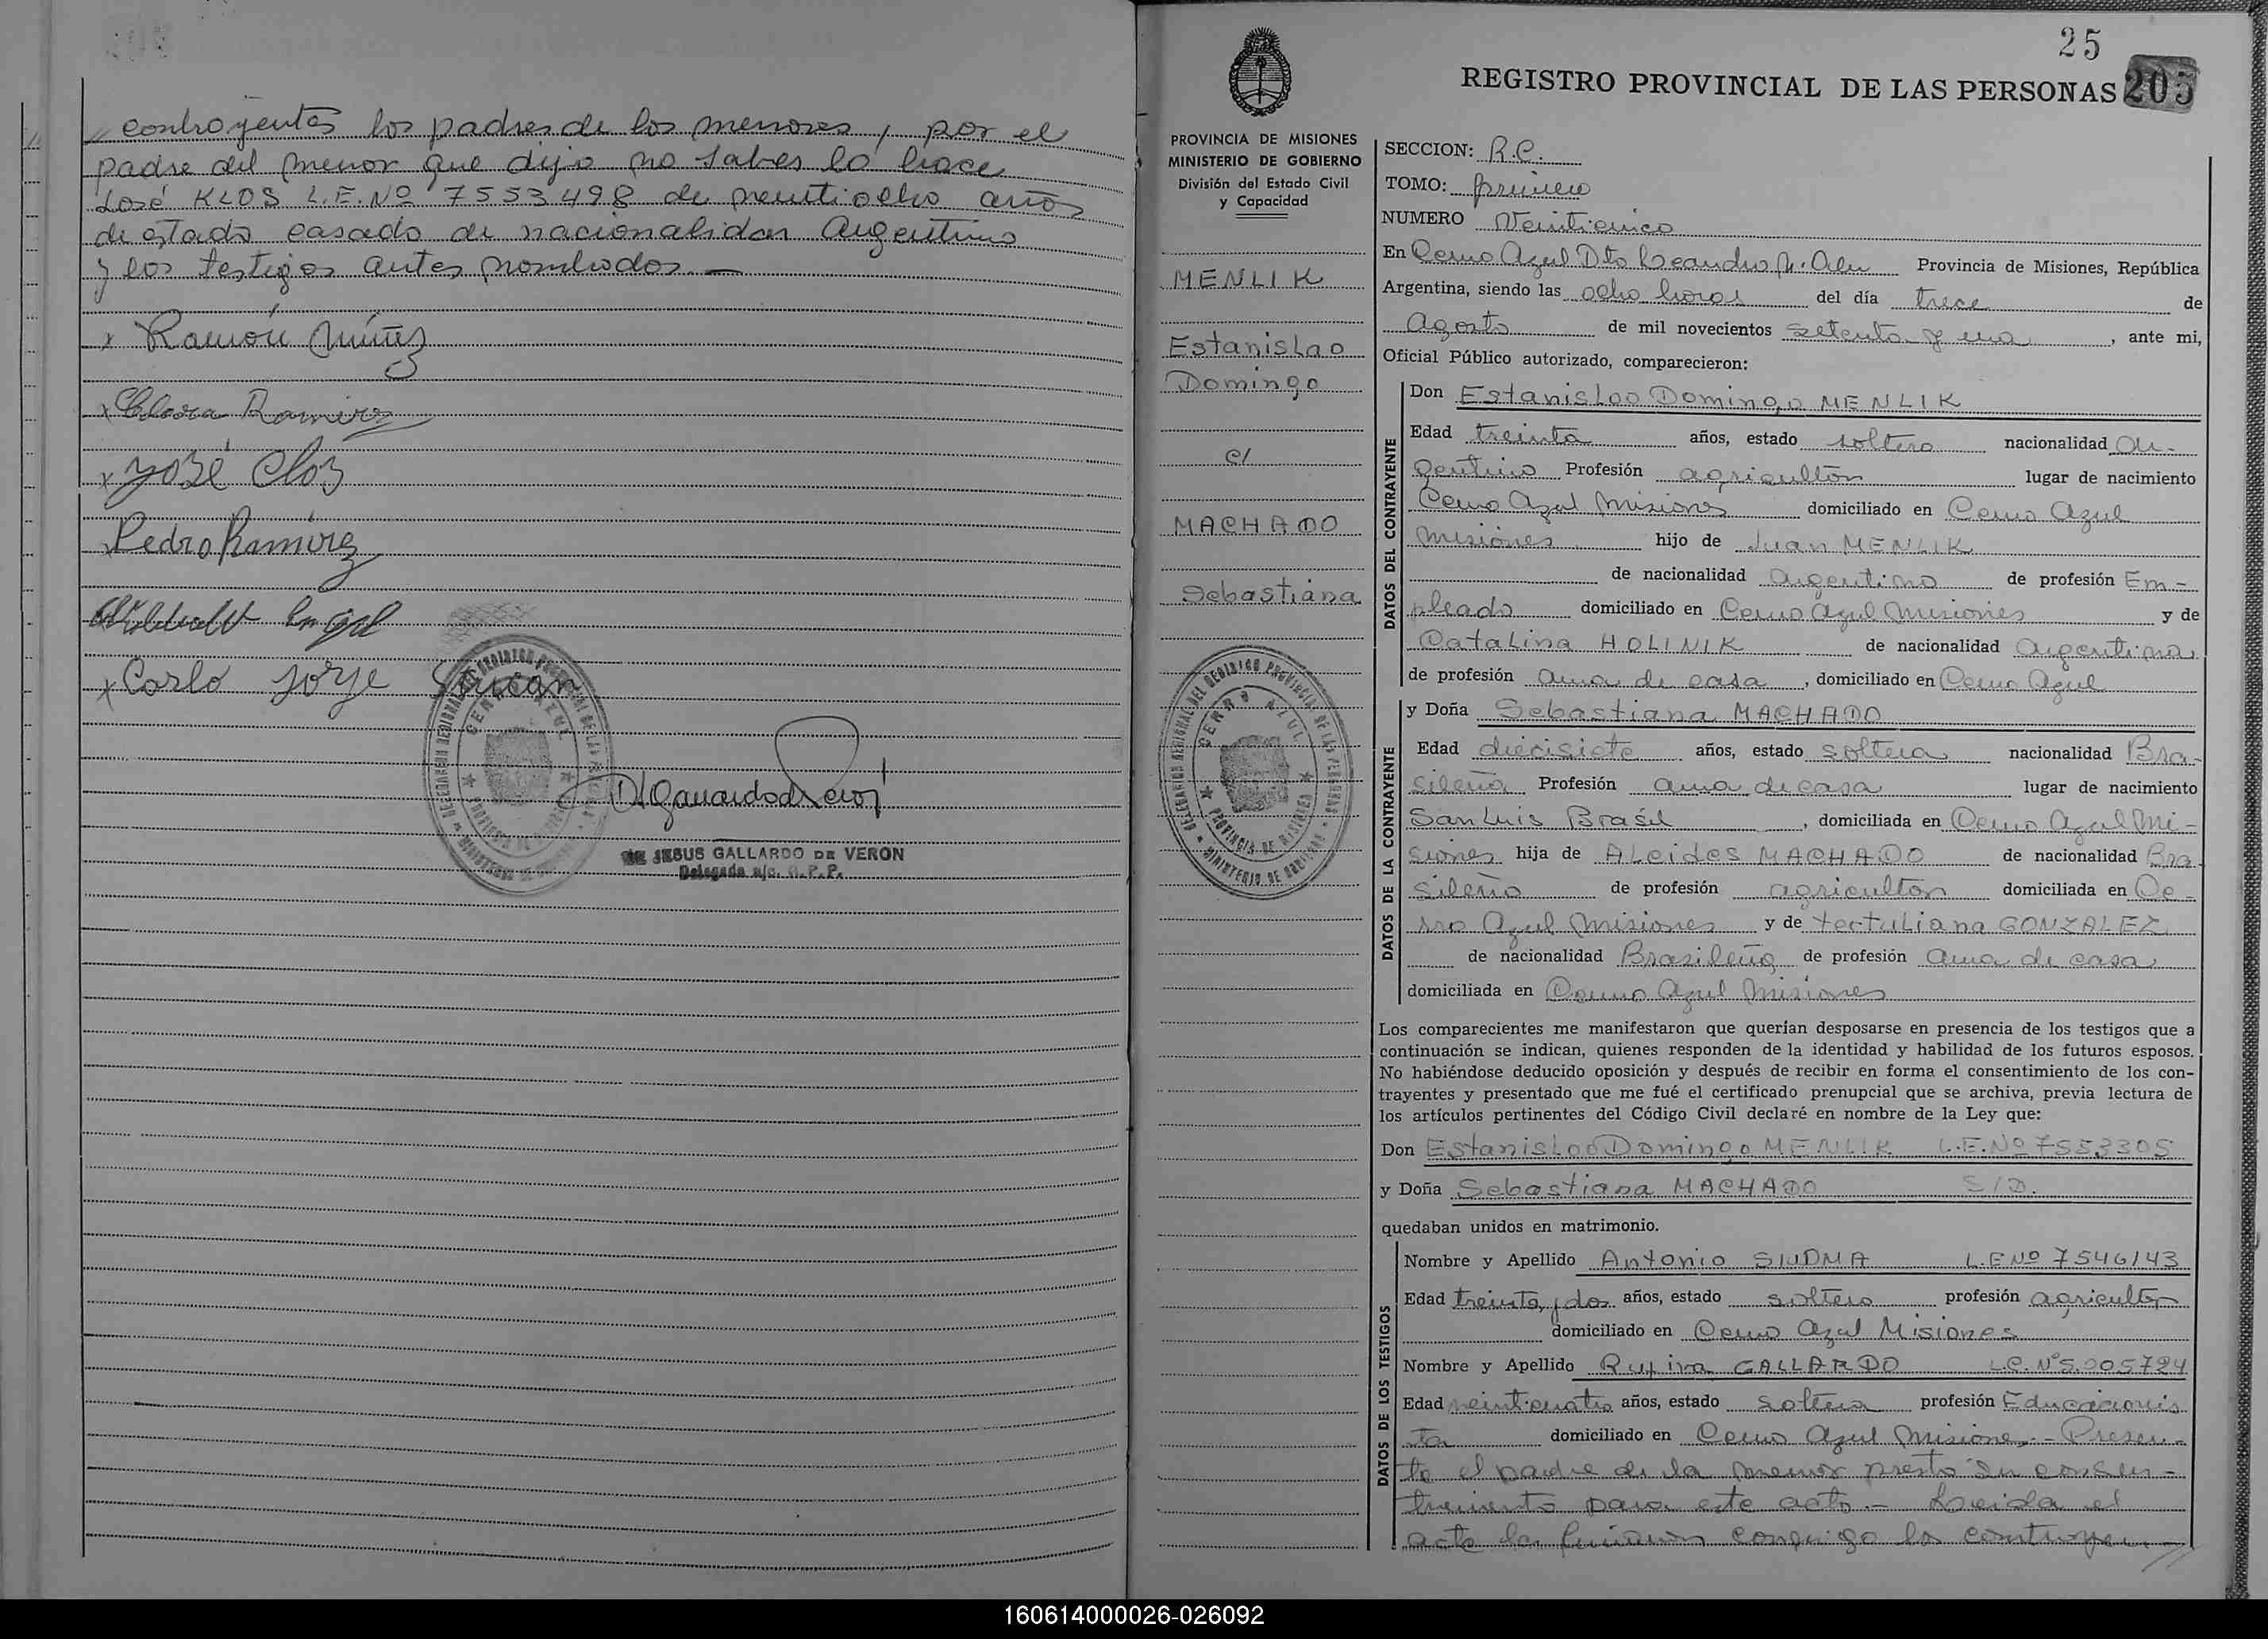 contrayentes los padres de los menores, por el
padre del menor que dijo no saber lo hace
José KLOS L.E.Nº 7553498 de veintiocho años
de estado casado de nacionalidad Argentino
y los testigos antes nombrados.—
x Ramón Núñez
x Clara Ramirez
x José Clos
x Pedro Ramirez
x Carlo Jorje
CERRO AZUL
DE JESUS GALLARDO DE VERON
Delegada a/c. R.P.P.
25
REGISTRO PROVINCIAL DE LAS PERSONAS 205
PROVINCIA DE MISIONES
MINISTERIO DE GOBIERNO
División del Estado Civil
y Capacidad
MENLIK
Estanislao
Domingo
c/
MACHADO
Sebastiana
DELEGACION REGIONAL DEL REGISTRO PROVINCIAL DE LAS PERSONAS
CERRO AZUL
PROVINCIA DE MISIONES
MINISTERIO DE GOBIERNO
SECCION: R.C.
TOMO: primero
NUMERO Veinticinco
En Cerro Azul Dto Leandro N. Alem Provincia de Misiones, República
Argentina, siendo las ocho horas del día trece de
Agosto de mil novecientos setenta y uno, ante mi,
Oficial Público autorizado, comparecieron:
DATOS DEL CONTRAYENTE
Don Estanislao Domingo MENLIK
Edad treinta años, estado soltero nacionalidad Ar-
gentino Profesión agricultor lugar de nacimiento
Cerro Azul Misiones domiciliado en Cerro Azul
Misiones hijo de Juan MENLIK
de nacionalidad Argentino de profesión Em-
pleado domiciliado en Cerro Azul Misiones y de
Catalina HOLINIK de nacionalidad Argentina
de profesión ama de casa, domiciliado en Cerro Azul
DATOS DE LA CONTRAYENTE
y Doña Sebastiana MACHADO
Edad diecisiete años, estado soltera nacionalidad Bra-
sileña Profesión ama de casa lugar de nacimiento
San Luis Brasil, domiciliada en Cerro Azul Mi-
siones hija de Alcides MACHADO de nacionalidad Bra-
sileño de profesión agricultor domiciliada en Ce-
rro Azul Misiones y de tertuliana GONZALEZ
de nacionalidad Brasileña de profesión ama de casa
domiciliada en Cerro Azul Misiones
Los comparecientes me manifestaron que querían desposarse en presencia de los testigos que a
continuación se indican, quienes responden de la identidad y habilidad de los futuros esposos.
No habiéndose deducido oposición y después de recibir en forma el consentimiento de los con-
trayentes y presentado que me fué el certificado prenupcial que se archiva, previa lectura de
los artículos pertinentes del Código Civil declaré en nombre de la Ley que:
Don Estanislao Domingo MENLIK L.E.Nº 7553305
y Doña Sebastiana MACHADO S/D.
quedaban unidos en matrimonio.
DATOS DE LOS TESTIGOS
Nombre y Apellido Antonio SIUDMA L.E Nº 7546143
Edad treinta y dos años, estado soltero profesión agricultor
domiciliado en Cerro Azul Misiones
Nombre y Apellido Rufina GALLARDO L.C. Nº 5.005724
Edad veinticuatro años, estado soltera profesión Educacionis
ta domiciliado en Cerro Azul Misiones.- Presen-
te el padre de la menor presto su consen-
timiento para este acto.- Leida el
acta la firmaron conmigo los contrayen-
160614000026-026092